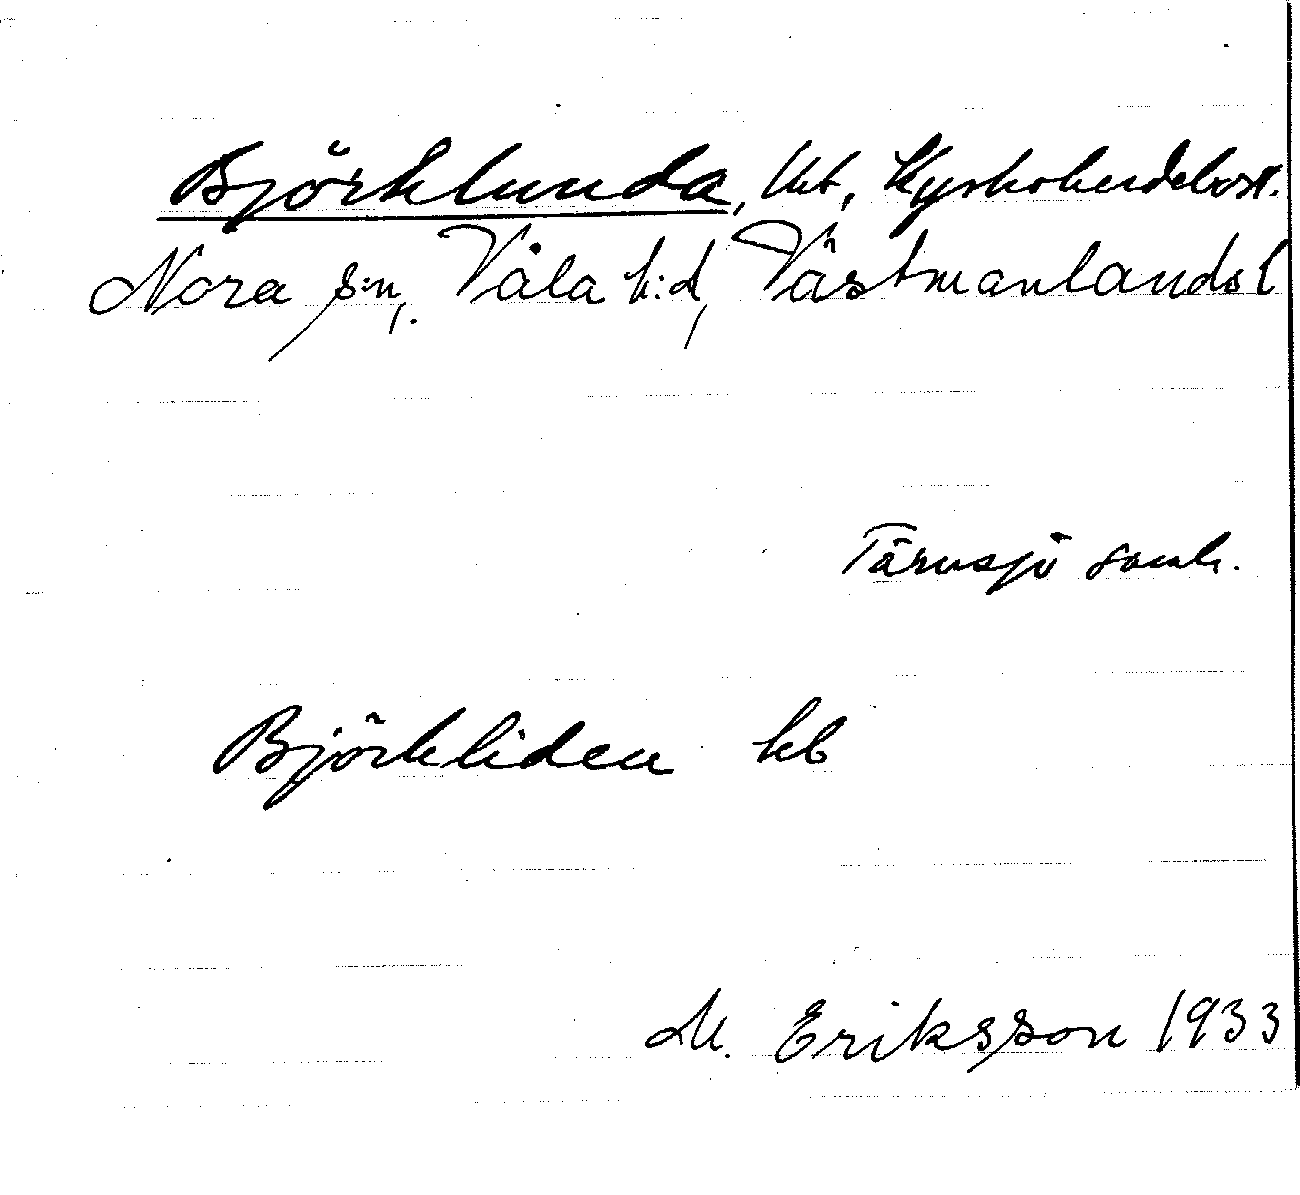 Björklunda, lht, Kyrkoherdebost.
Nora s:n, Våla h:d, Västmanlands l
Tärnsjö samh.
Björkliden hb
M. Eriksson 1933